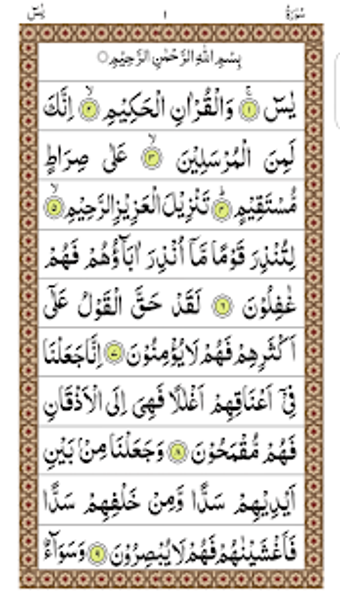 سُورَةُ ١ يٰسٓ
بِسْمِ اللهِ الرَّحْمٰنِ الرَّحِيْمِ ○
يٰسٓ ۚ﴿١﴾ وَالْقُرْاٰنِ الْحَكِيْمِ ۙ﴿٢﴾ اِنَّكَ
لَمِنَ الْمُرْسَلِيْنَ ۙ﴿٣﴾ عَلٰى صِرَاطٍ
مُّسْتَقِيْمٍ ؕ﴿٤﴾ تَنْزِيْلَ الْعَزِيْزِ الرَّحِيْمِ ۙ﴿٥﴾
لِتُنْذِرَ قَوْمًا مَّاۤ اُنْذِرَ اٰبَآؤُهُمْ فَهُمْ
غٰفِلُوْنَ ﴿٦﴾ لَقَدْ حَقَّ الْقَوْلُ عَلٰۤى
اَكْثَرِهِمْ فَهُمْ لَا يُؤْمِنُوْنَ ﴿٧﴾ اِنَّا جَعَلْنَا
فِيْۤ اَعْنَاقِهِمْ اَغْلٰلًا فَهِيَ اِلَى الْاَذْقَانِ
فَهُمْ مُّقْمَحُوْنَ ﴿٨﴾ وَجَعَلْنَا مِنْۢ بَيْنِ
اَيْدِيْهِمْ سَدًّا وَّمِنْ خَلْفِهِمْ سَدًّا
فَاَغْشَيْنٰهُمْ فَهُمْ لَا يُبْصِرُوْنَ ﴿٩﴾ وَسَوَآءٌ